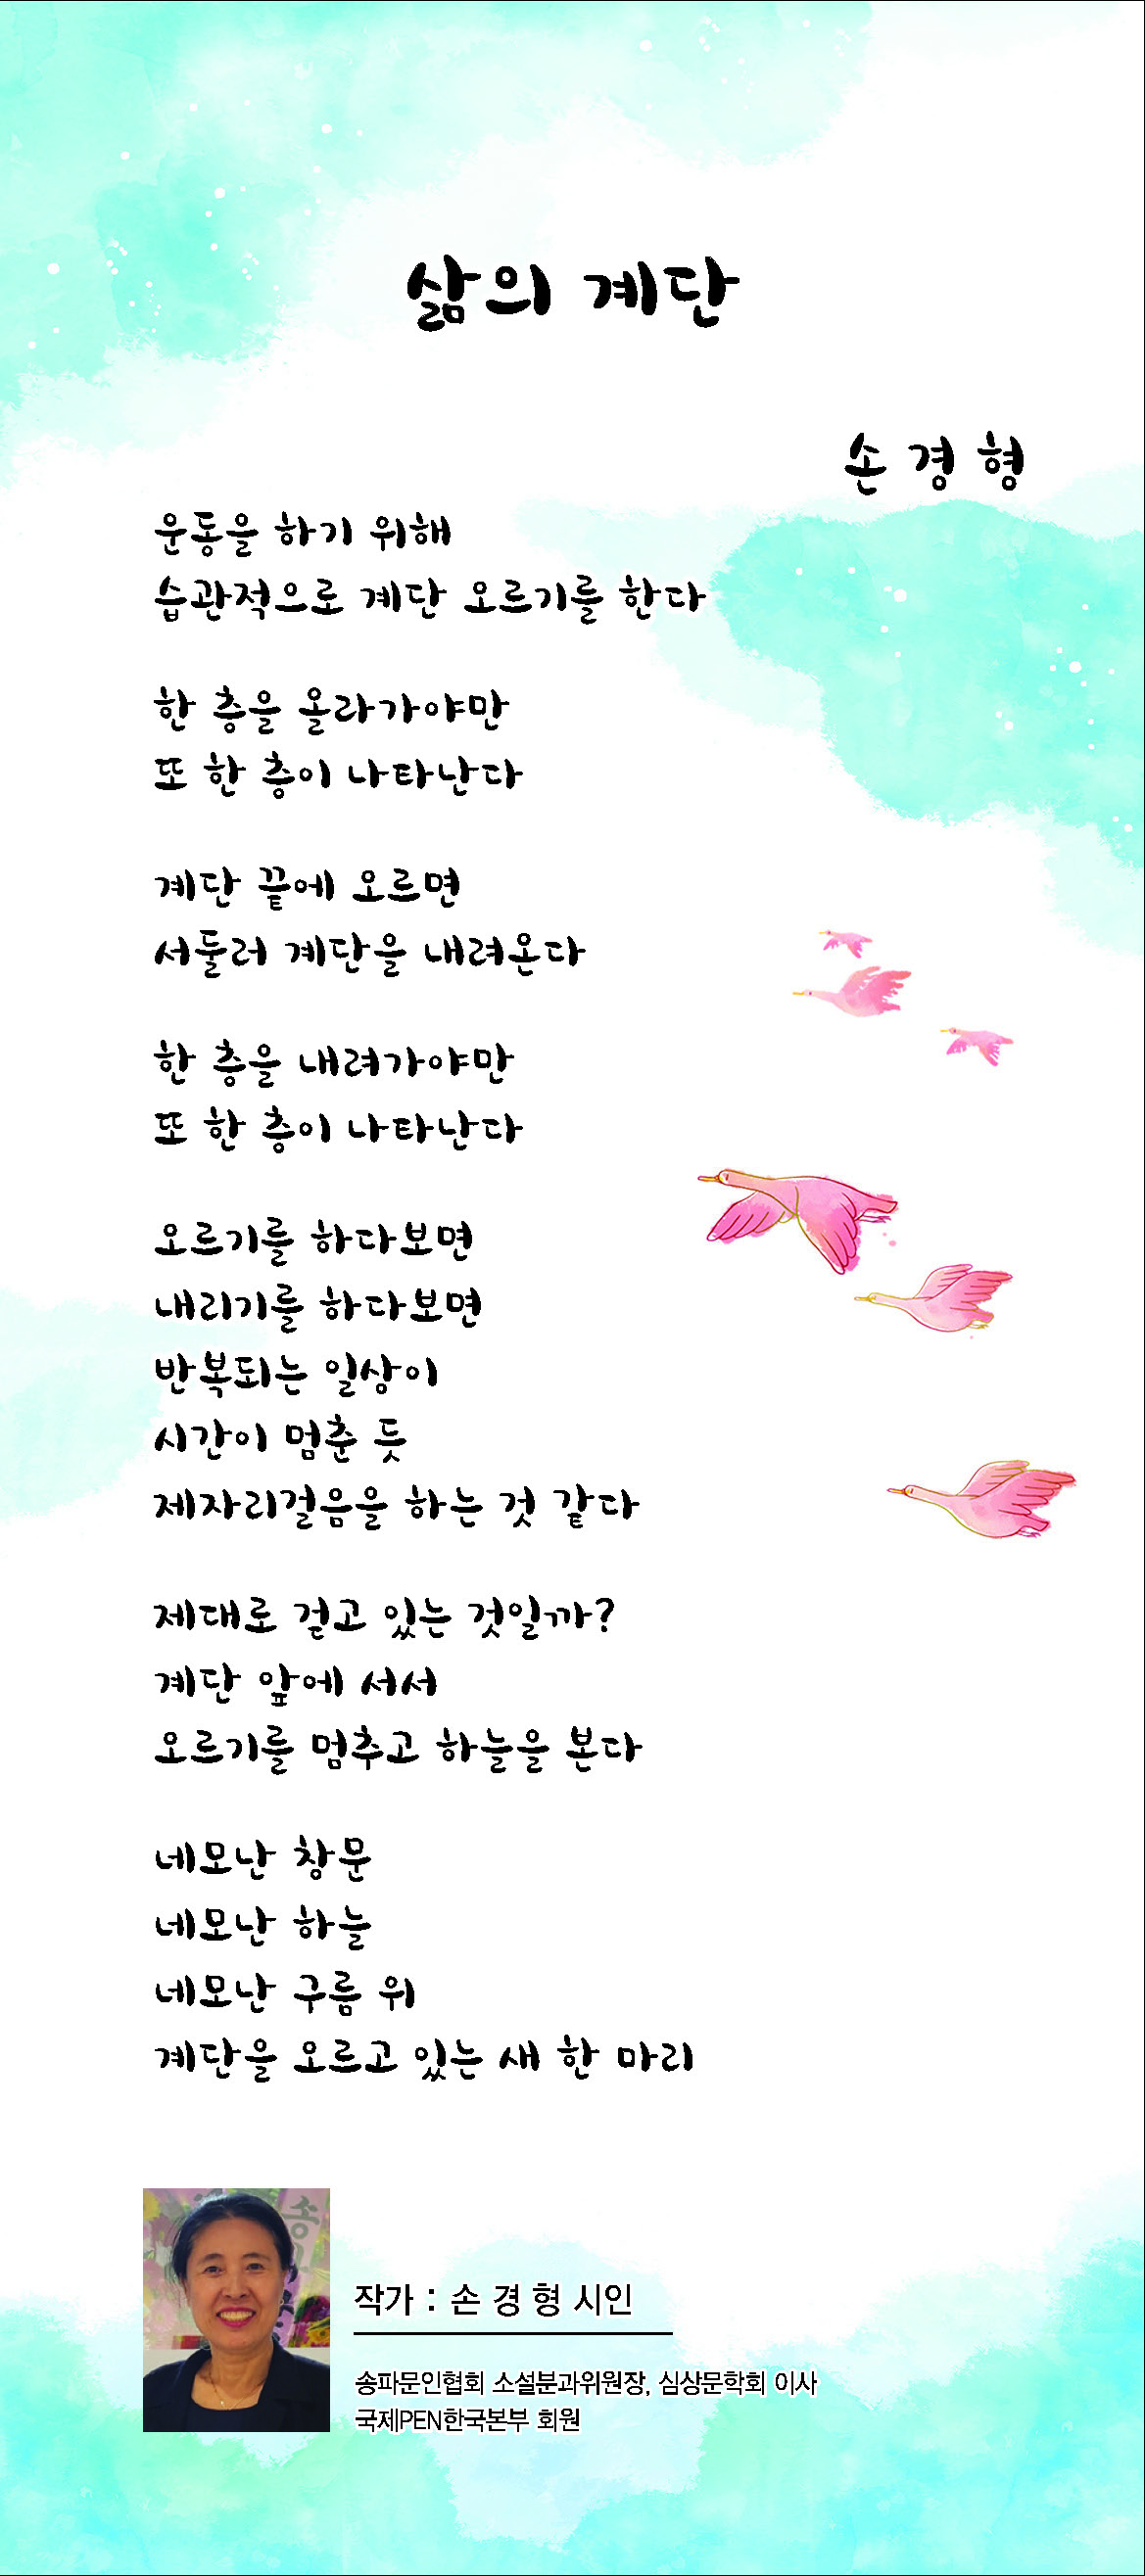 삶의 계단
손 경 형
운동을 하기 위해
습관적으로 계단 오르기를 한다
한 층을 올라가야만
또 한 층이 나타난다
계단 끝에 오르면
서둘러 계단을 내려온다
한 층을 내려가야만
또 한 층이 나타난다
오르기를 하다보면
내리기를 하다보면
반복되는 일상이
시간이 멈춘 듯
제자리걸음을 하는 것 같다
제대로 걷고 있는 것일까?
계단 앞에 서서
오르기를 멈추고 하늘을 본다
네모난 창문
네모난 하늘
네모난 구름 위
계단을 오르고 있는 새 한 마리
작가 : 손 경 형 시인
송파문인협회 소설분과위원장, 심상문학회 이사
국제PEN한국본부 회원